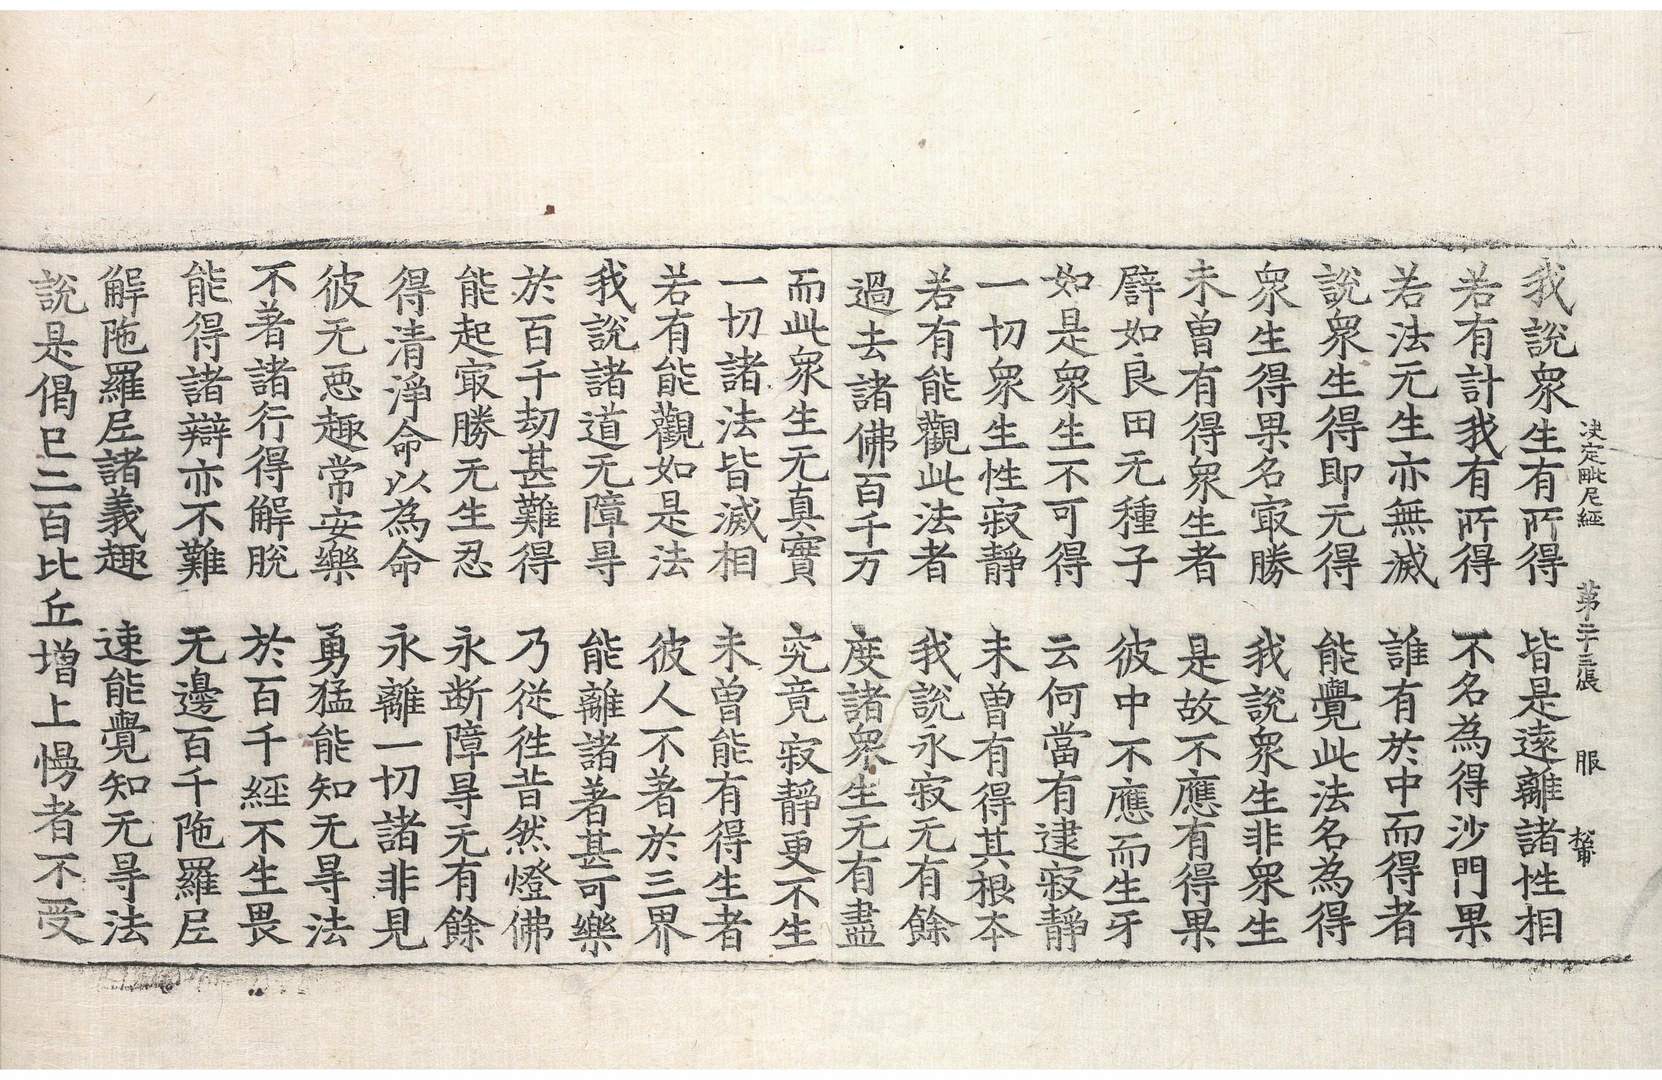 決定毗尼經　第二十三張　服
我說衆生有所得　皆是遠離諸性相
若有計我有所得　不名為得沙門果
若法无生亦無滅　誰有於中而得者
說衆生得即无得　能覺此法名為得
衆生得果名㝡勝　我說衆生非衆生
未曾有得衆生者　是故不應有得果
譬如良田无種子　彼中不應而生牙
如是衆生不可得　云何當有逮寂靜
一切衆生性寂靜　未曾有得其根夲
若有能觀此法者　我說永寂无有餘
過去諸佛百千万　度諸衆生无有盡
而此衆生无真實　究竟寂靜更不生
一切諸法皆滅相　未曾能有得生者
若有能觀如是法　彼人不著於三界
我說諸道无障㝵　能離諸著甚可樂
於百千劫甚難得　乃從徃昔然燈佛
能起㝡勝无生忍　永断障㝵无有餘
得清淨命以為命　永離一切諸非見
彼无惡趣常安樂　勇猛能知无㝵法
不著諸行得解脫　於百千經不生畏
能得諸辯亦不難　无邊百千陁羅尼
解陁羅尼諸義趣　速能覺知无㝵法
說是偈已二百比丘增上慢者不受